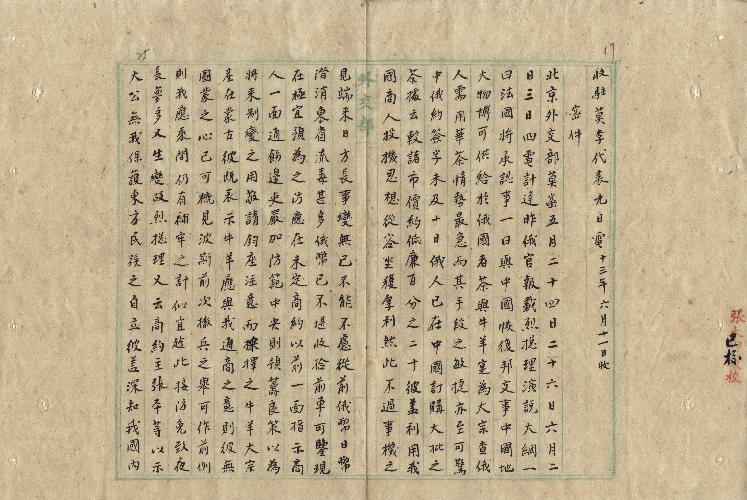 17
收駐莫李代表九日電 十三年六月十一日收
密件
北京外交部莫第五月二十四日二十六日六月二
日三日四電計達昨俄官報載烈揆理演說大綱一
曰法國將承認事一曰與中國恢復邦交事中國地
大物博可供給於俄國者茶與牛羊寔為大宗查俄
人需用華茶情勢最急而其手段之敏捷亦至可驚
中俄約簽字未及十日俄人已在中國訂購大批之
茶據云較諸市價約低廉百分之二十彼蓋利用我
國商人投機思想從容坐獲厚利然此不過事機之
外交部
見端來日方長事變無已不能不慮從前俄幣日幣
潛消東省流毒甚多俄幣已不堪收拾前車可鑒現
在極宜預為之防應在未定商約以前一面指示商
人一面通飭邊吏嚴加防範中央則預籌良策以為
將來別變之用敬請鈞座注意而採擇之牛羊大宗
產在蒙古彼既表示牛羊應與我通商之意則彼無
圖蒙之心已可概見波斯前次撤兵之舉可作前例
則我應乘間仍有補牢之計似宜趁此接防免致夜
長夢多又生變故烈揆理又云商約主張平等以示
大公無我保護東方民族之自立彼蓋深知我國內
25
張
已校
校